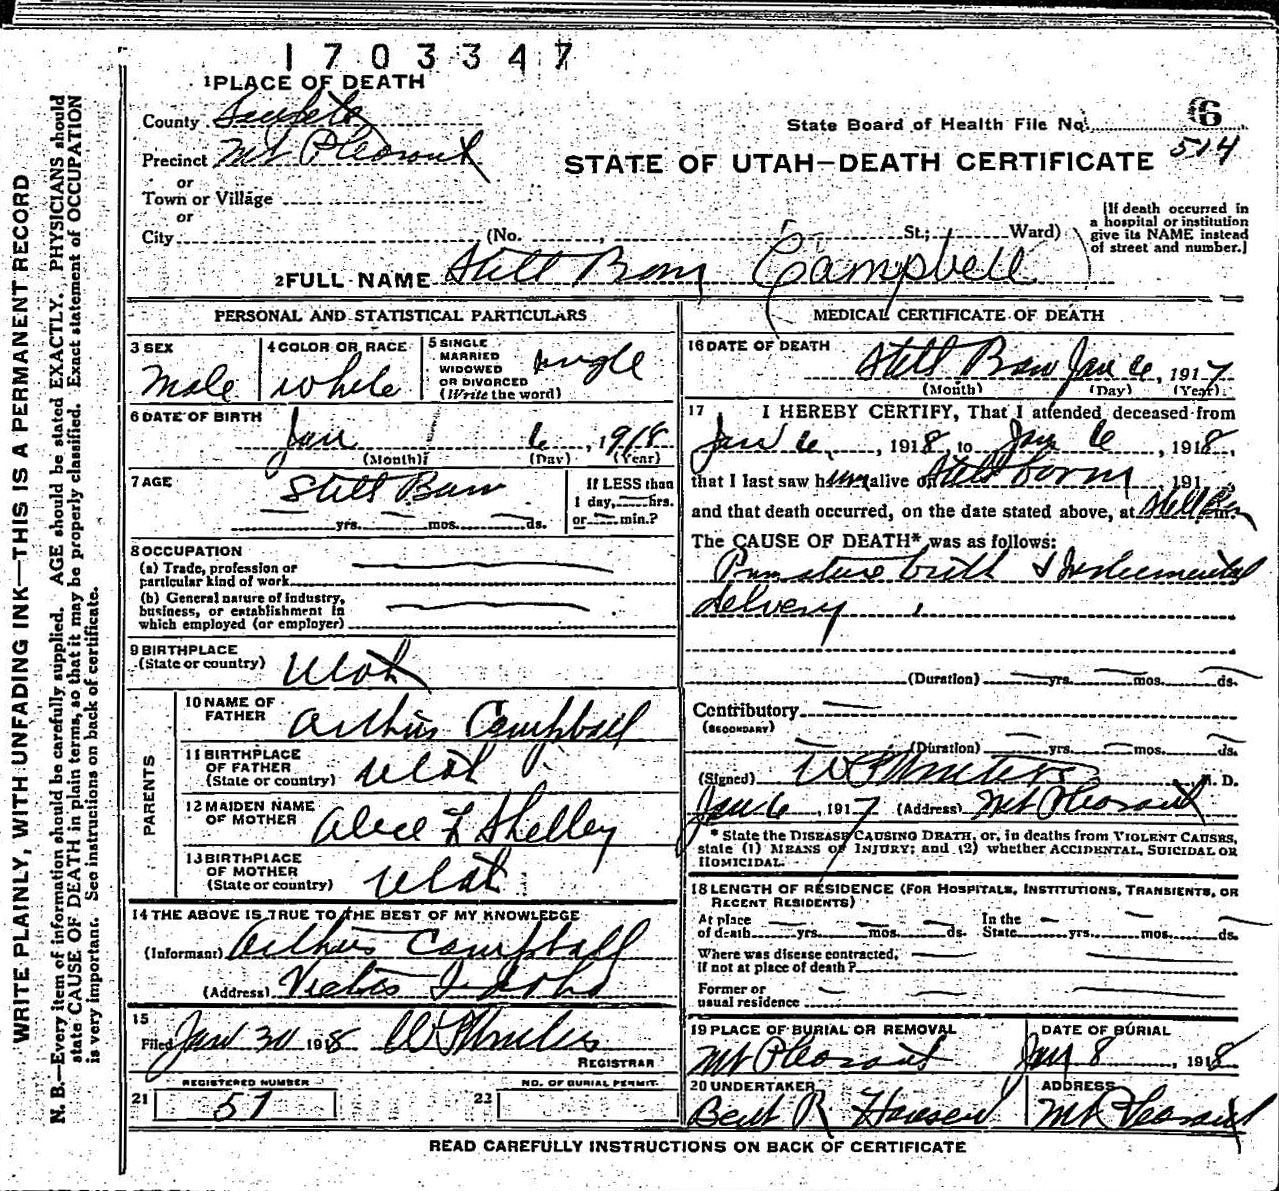 1703347
1 PLACE OF DEATH
County
Precinct Mt. Pleasant
or
Town or Village
or
City (No. , St.; Ward)
State Board of Health File No. 6
514
STATE OF UTAH—DEATH CERTIFICATE
[If death occurred in
a hospital or institution
give its NAME instead
of street and number.]
2 FULL NAME Still Born Campbell
PERSONAL AND STATISTICAL PARTICULARS
3 SEX
Male
4 COLOR OR RACE
White
5 SINGLE
MARRIED
WIDOWED
OR DIVORCED
(Write the word)
single
6 DATE OF BIRTH
Jan 6, 1918
(Month) (Day) (Year)
7 AGE
Still Born
yrs. mos. ds.
If LESS than
1 day, hrs.
or min.?
8 OCCUPATION
(a) Trade, profession or
particular kind of work
(b) General nature of industry,
business, or establishment in
which employed (or employer)
9 BIRTHPLACE
(State or country)
Utah
PARENTS
10 NAME OF
FATHER
Arthur Campbell
11 BIRTHPLACE
OF FATHER
(State or country)
Utah
12 MAIDEN NAME
OF MOTHER
Alice F Shelley
13 BIRTHPLACE
OF MOTHER
(State or country)
Utah
14 THE ABOVE IS TRUE TO THE BEST OF MY KNOWLEDGE
(Informant) Arthur Campbell
(Address) Idaho
15
Filed Jan 30 1918
REGISTRAR
REGISTERED NUMBER
21 51
NO. OF BURIAL PERMIT.
22
MEDICAL CERTIFICATE OF DEATH
16 DATE OF DEATH
Still Born Jan 6, 1917
(Month) (Day) (Year)
17 I HEREBY CERTIFY, That I attended deceased from
Jan 6, 1918, to Jan 6, 1918,
that I last saw him alive on Stillborn, 191
and that death occurred, on the date stated above, at Still Born m.
The CAUSE OF DEATH* was as follows:
Premature birth & Instrumental
delivery
(Duration) yrs. mos. ds.
Contributory
(SECONDARY)
(Duration) yrs. mos. ds.
(Signed) M. D.
Jan 6, 1917 (Address) Mt Pleasant
* State the DISEASE CAUSING DEATH, or, in deaths from VIOLENT CAUSES,
state (1) MEANS OF INJURY; and (2) whether ACCIDENTAL, SUICIDAL OR
HOMICIDAL.
18 LENGTH OF RESIDENCE (FOR HOSPITALS, INSTITUTIONS, TRANSIENTS, OR
RECENT RESIDENTS)
At place
of death yrs. mos. ds.
In the
State yrs. mos. ds.
Where was disease contracted,
if not at place of death?
Former or
usual residence
19 PLACE OF BURIAL OR REMOVAL
Mt Pleasant
DATE OF BURIAL
Jan 8, 1918
20 UNDERTAKER
Bent R Hansen
ADDRESS
Mt Pleasant
READ CAREFULLY INSTRUCTIONS ON BACK OF CERTIFICATE
WRITE PLAINLY, WITH UNFADING INK—THIS IS A PERMANENT RECORD
N. B.—Every item of information should be carefully supplied. AGE should be stated EXACTLY. PHYSICIANS should
state CAUSE OF DEATH in plain terms, so that it may be properly classified. Exact statement of OCCUPATION
is very important. See instructions on back of certificate.